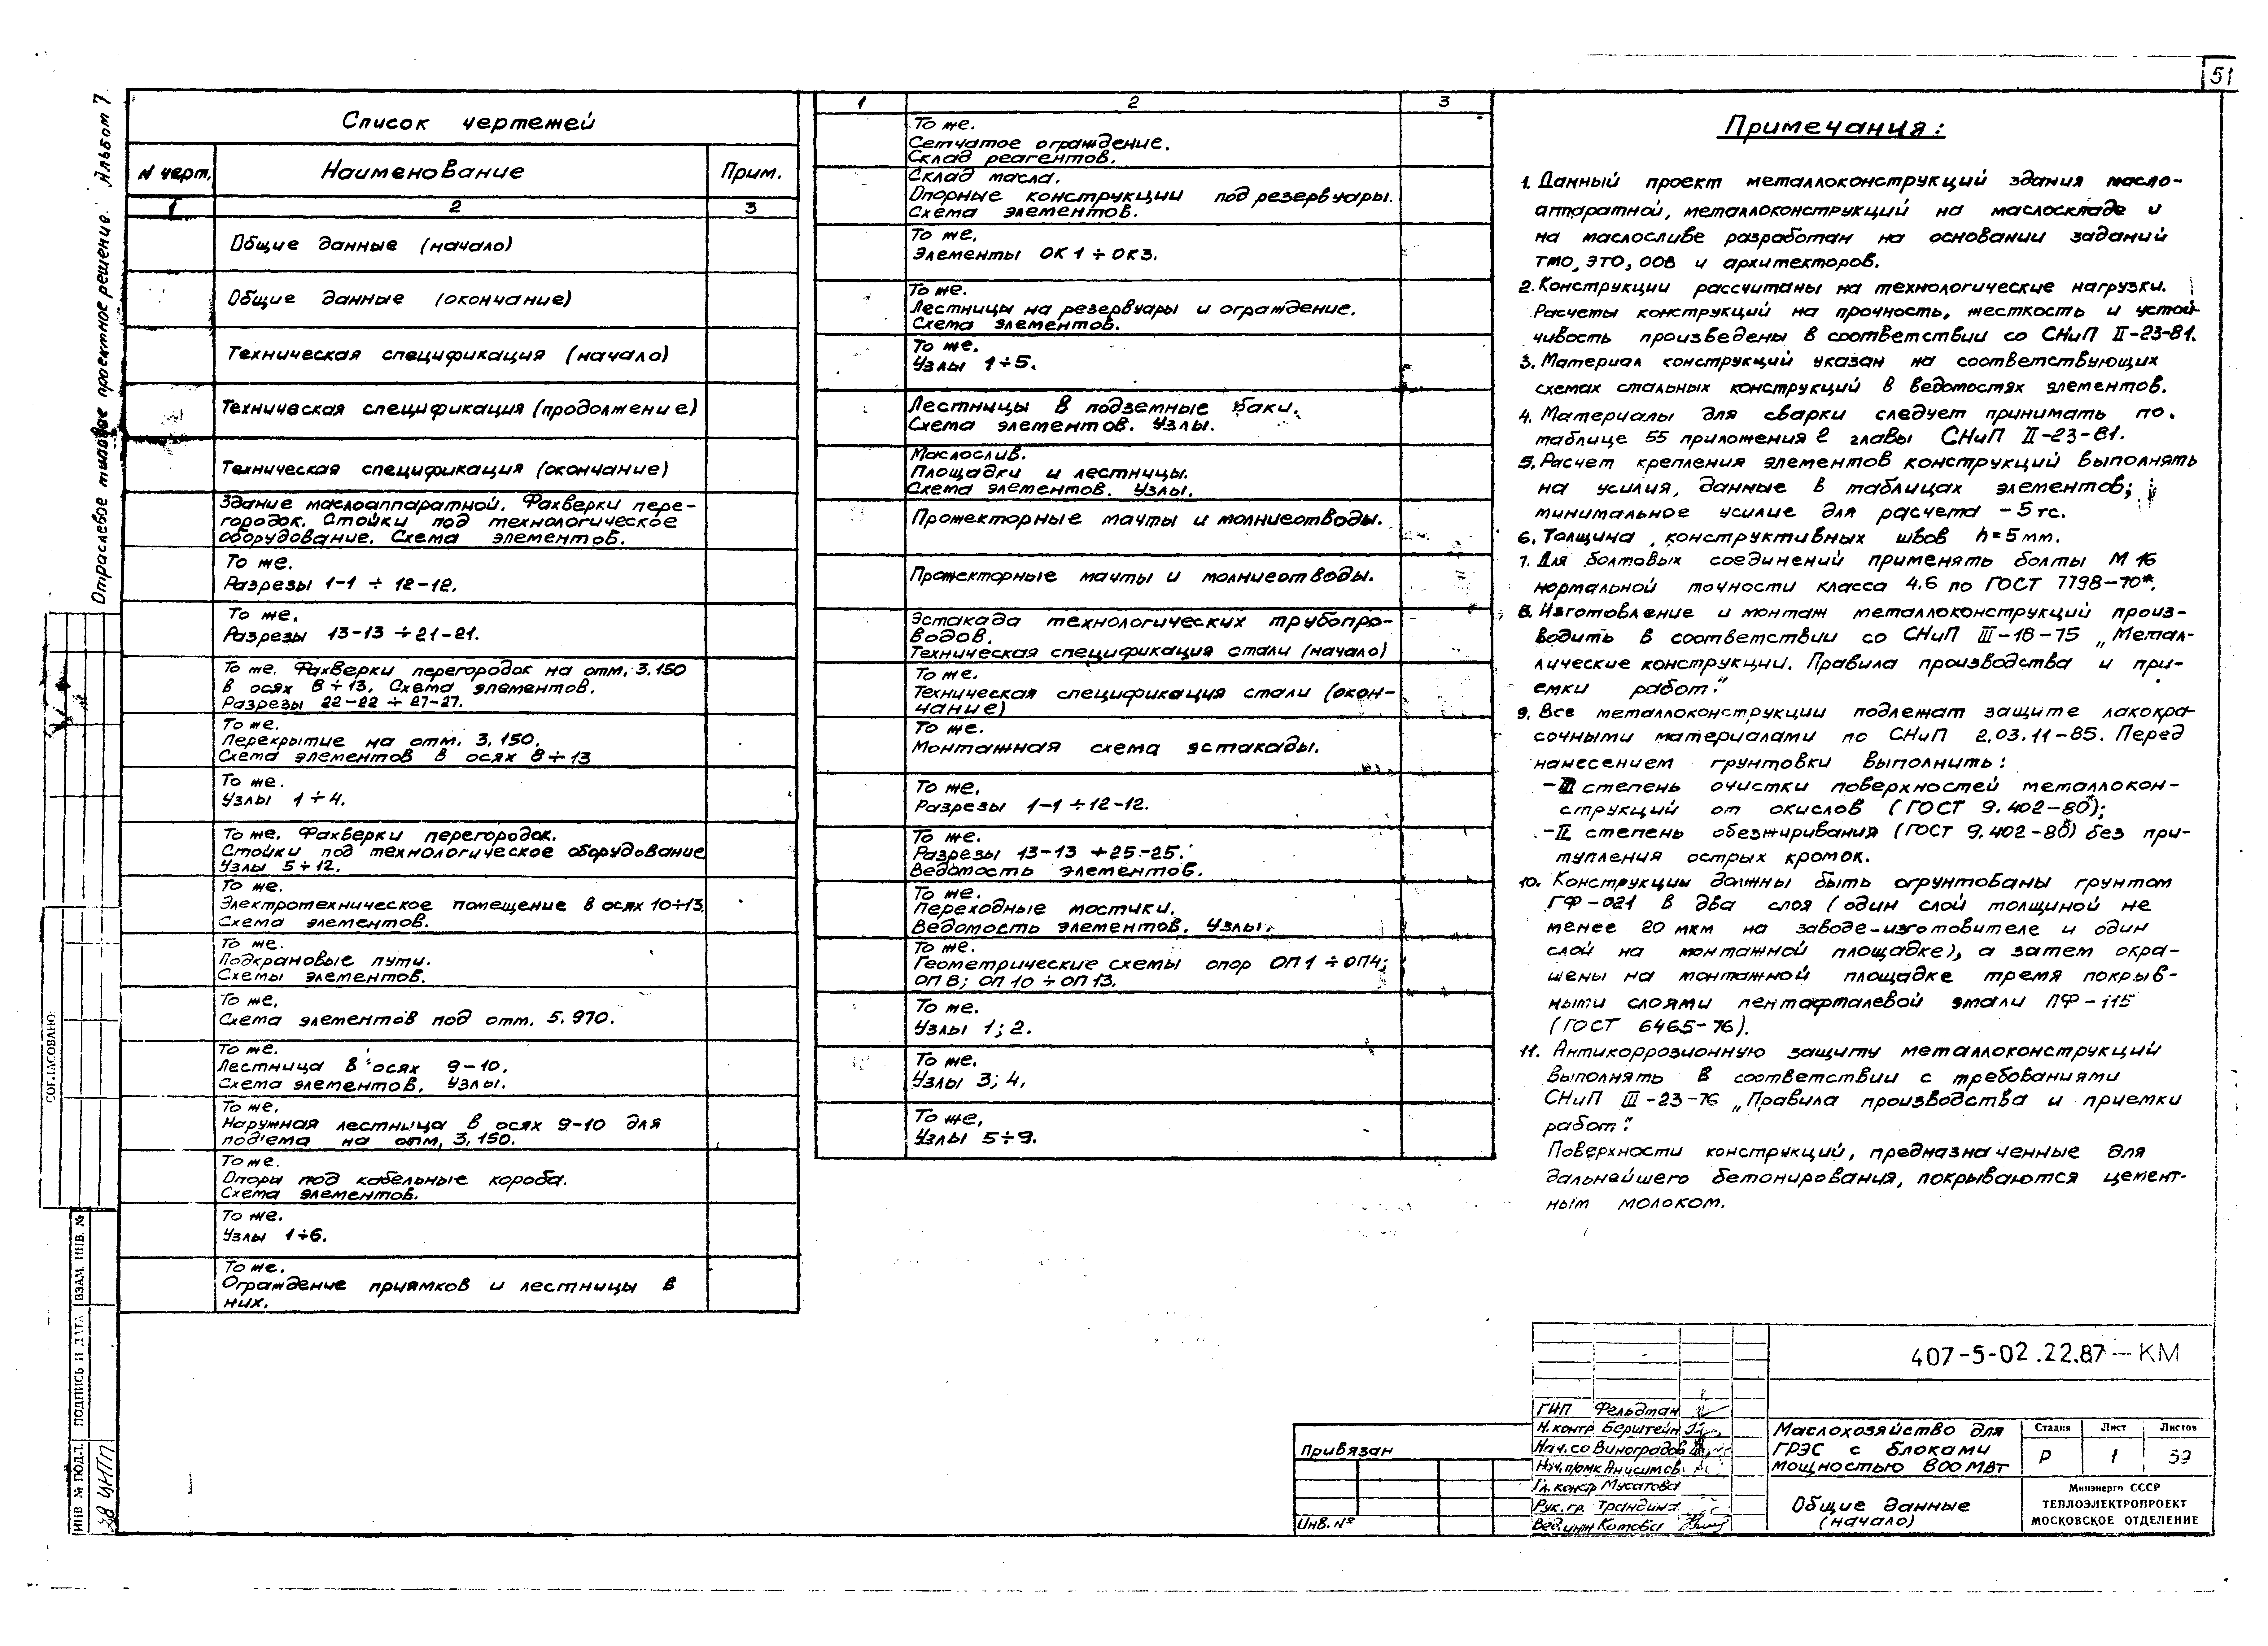 51
Отраслевое типовое проектное решение. Альбом 7
Список чертежей
N черт. Наименование Прим.
1 2 3
Общие данные (начало)
Общие данные (окончание)
Техническая спецификация (начало)
Техническая спецификация (продолжение)
Техническая спецификация (окончание)
Здание маслоаппаратной. Фахверки пере-
городок. Стойки под технологическое
оборудование. Схема элементов.
То же.
Разрезы 1-1 ÷ 12-12.
То же.
Разрезы 13-13 ÷ 21-21.
То же. Фахверки перегородок на отм. 3.150
в осях 8÷13. Схема элементов.
Разрезы 22-22 ÷ 27-27.
То же.
Перекрытие на отм. 3.150.
Схема элементов в осях 8÷13
То же.
Узлы 1÷4.
То же. Фахверки перегородок.
Стойки под технологическое оборудование
Узлы 5÷12.
То же.
Электротехническое помещение в осях 10÷13.
Схема элементов.
То же.
Подкрановые пути.
Схемы элементов.
То же.
Схема элементов под отм. 5.970.
То же.
Лестница в осях 9-10.
Схема элементов. Узлы.
То же.
Наружная лестница в осях 9-10 для
под'ема на отм. 3.150.
То же.
Опоры под кабельные короба.
Схема элементов.
То же.
Узлы 1÷6.
То же.
Ограждение приямков и лестницы в
них.
1 2 3
То же.
Сетчатое ограждение.
Склад реагентов.
Склад масла.
Опорные конструкции под резервуары.
Схема элементов.
То же.
Элементы ОК1 ÷ ОК3.
То же.
Лестницы на резервуары и ограждение.
Схема элементов.
То же.
Узлы 1÷5.
Лестницы в подземные баки.
Схема элементов. Узлы.
Маслослив.
Площадки и лестницы.
Схема элементов. Узлы.
Прожекторные мачты и молниеотводы.
Прожекторные мачты и молниеотводы.
Эстакада технологических трубопро-
водов.
Техническая спецификация стали (начало)
То же.
Техническая спецификация стали (окон-
чание)
То же.
Монтажная схема эстакады.
То же.
Разрезы 1-1 ÷ 12-12.
То же.
Разрезы 13-13 ÷ 25-25.
Ведомость элементов.
То же.
Переходные мостики.
Ведомость элементов. Узлы.
То же.
Геометрические схемы опор ОП1 ÷ ОП4;
ОП8; ОП10 ÷ ОП13.
То же.
Узлы 1; 2.
То же.
Узлы 3; 4.
То же.
Узлы 5÷9.
Примечания:
1. Данный проект металлоконструкций здания масло-
аппаратной, металлоконструкций на маслоскладе и
на маслосливе разработан на основании заданий
ТМО, ЭТО, ООВ и архитекторов.
2. Конструкции рассчитаны на технологические нагрузки.
Расчеты конструкций на прочность, жесткость и устой-
чивость произведены в соответствии со СНиП II-23-81.
3. Материал конструкций указан на соответствующих
схемах стальных конструкций в ведомостях элементов.
4. Материалы для сварки следует принимать по
таблице 55 приложения 2 главы СНиП II-23-81.
5. Расчет крепления элементов конструкций выполнять
на усилия, данные в таблицах элементов;
минимальное усилие для расчета - 5тс.
6. Толщина конструктивных швов h=5мм.
7. Для болтовых соединений применять болты М16
нормальной точности класса 4.6 по ГОСТ 7798-70*.
8. Изготовление и монтаж металлоконструкций произ-
водить в соответствии со СНиП III-16-75 „Метал-
лические конструкции. Правила производства и при-
емки работ."
9. Все металлоконструкции подлежат защите лакокра-
сочными материалами по СНиП 2.03.11-85. Перед
нанесением грунтовки выполнить:
- III степень очистки поверхностей металлокон-
струкций от окислов (ГОСТ 9.402-80*);
- II степень обезжиривания (ГОСТ 9.402-80*) без при-
тупления острых кромок.
10. Конструкции должны быть огрунтованы грунтом
ГФ-021 в два слоя (один слой толщиной не
менее 20 мкм на заводе-изготовителе и один
слой на монтажной площадке), а затем окра-
шены на монтажной площадке тремя покрыв-
ными слоями пентафталевой эмали ПФ-115
(ГОСТ 6465-76).
11. Антикоррозионную защиту металлоконструкций
выполнять в соответствии с требованиями
СНиП III-23-76 „Правила производства и приемки
работ."
Поверхности конструкций, предназначенные для
дальнейшего бетонирования, покрываются цемент-
ным молоком.
407-5-02.22.87-КМ
ГИП Фельдман
Н.контр Берштейн
Нач.со Виноградов
Нач.помк Анисимов
Гл.констр Мусатова
Рук.гр. Трандина
Вед.инж Котова
Маслохозяйство для
ГРЭС с блоками
мощностью 800МВт
Стадия Лист Листов
Р 1 39
Общие данные
(начало)
Минэнерго СССР
ТЕПЛОЭЛЕКТРОПРОЕКТ
МОСКОВСКОЕ ОТДЕЛЕНИЕ
Привязан
Инв. №
СОГЛАСОВАНО:
ВЗАМ. ИНВ. №
ПОДПИСЬ И ДАТА
ИНВ № ПОДЛ.